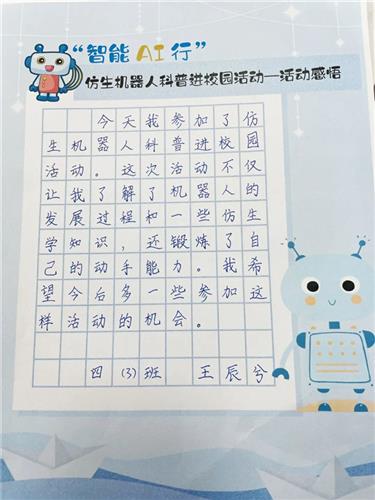 “智能AI行”
仿生机器人科普进校园活动—活动感悟
今天我参加了仿
生机器人科普进校园
活动。这次活动不仅
让我了解了机器人的
发展过程和一些仿生
学知识，还锻炼了自
己的动手能力。我希
望今后多一些参加这
样活动的机会。
四（3）班 王辰兮